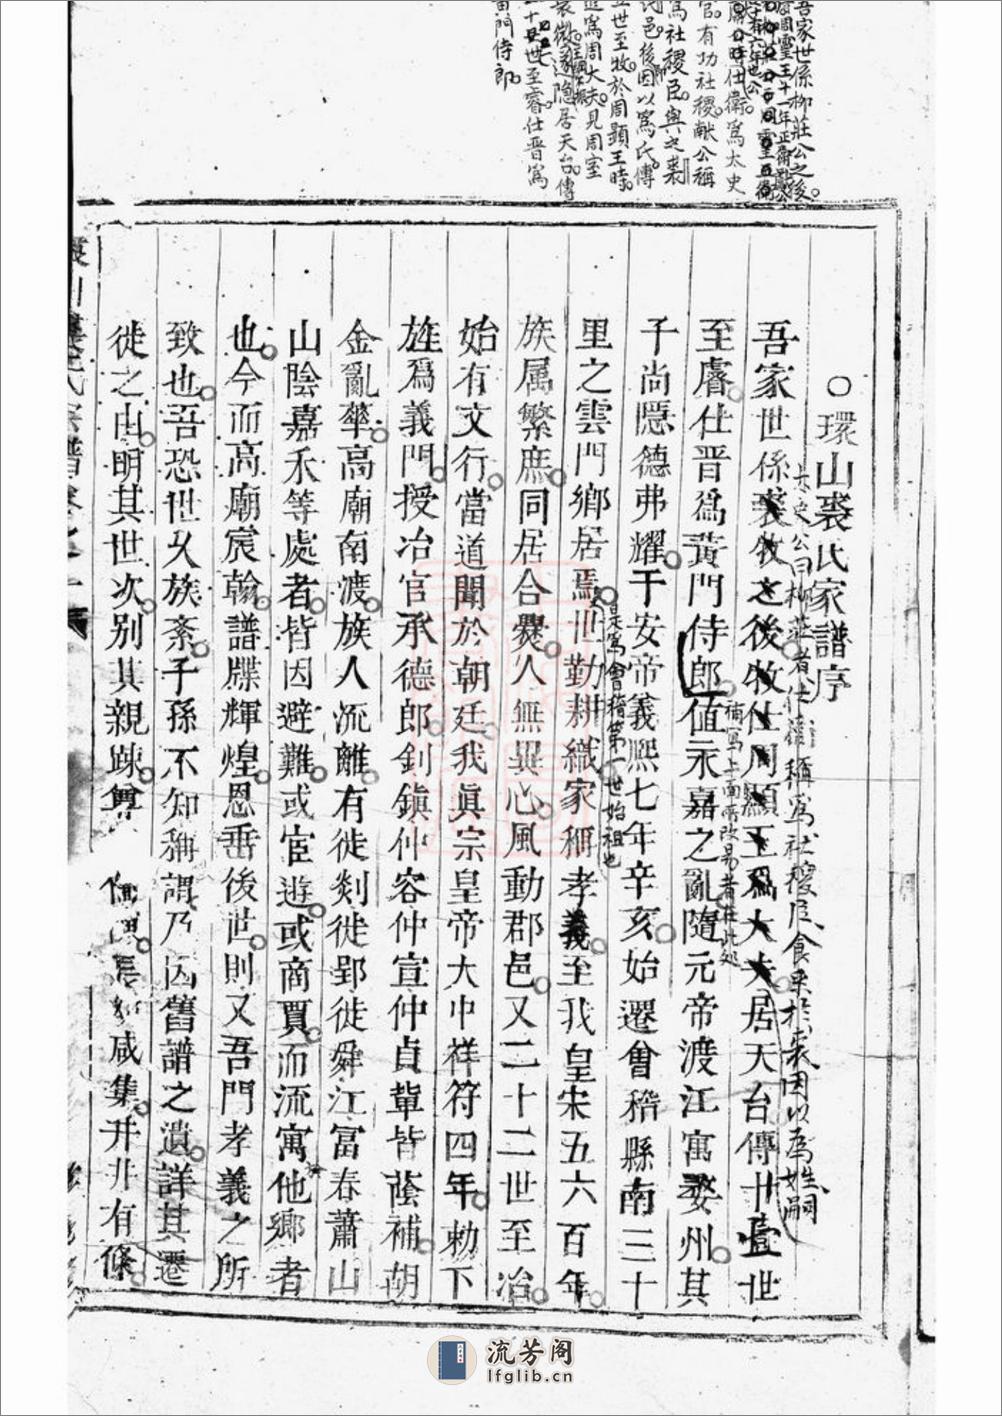 吾家世係柳莊公之後
官有功社稷獻公稱
爲社稷臣與之裘
氏邑後因以爲氏傳
世至牧於周顯王時
爲周大夫見周室
衰微遂隱居天台傳
十世至睿仕晉爲
黃門侍郎
○環山裘氏家譜序
太史公曰柳莊者仕衛稱爲社稷臣食采於裘因以爲姓嗣
吾家世係裘牧之後牧仕周顯王爲大夫居天台傳廿壹世
至睿仕晉爲黃門侍郎值永嘉之亂隨元帝渡江寓婺州其
補寫上面所改易者在此處
子尚隱德弗耀于安帝義熙七年辛亥始遷會稽縣南三十
是爲會稽第一世始祖也
里之雲門鄉居焉世勤耕織家稱孝義至我皇宋五六百年
族属繁庶同居合爨人無異心風動郡邑又二十二世至冶
始有文行當道聞於朝廷我眞宗皇帝大中祥符四年勅下
旌爲義門授冶官承德郎釗鎮仲容仲宣仲貞輩皆蔭補胡
金亂華高廟南渡族人流離有徙剡徙郢徙舜江富春蕭山
山陰嘉禾等處者皆因避難或宦遊或商賈而流寓他鄉者
也今而高廟宸翰譜牒輝煌恩垂後世則又吾門孝義之所
致也吾恐世久族紊子孫不知稱謂乃因舊譜之遺詳其遷
徙之由明其世次别其親踈尊 咸集井井有條
氏宗譜卷之一
流芳阁
lfglib.cn